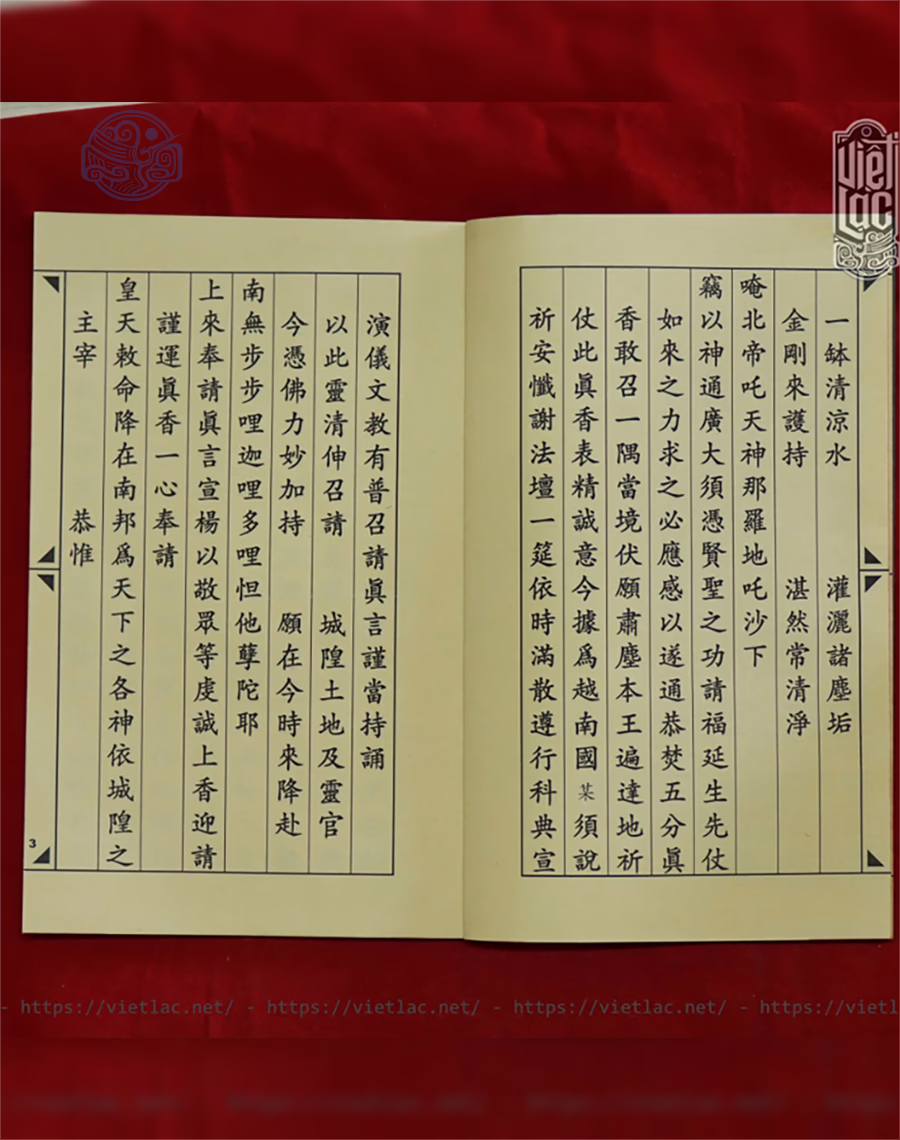 一缽清涼水 灌灑諸塵垢
金剛來護持 湛然常清淨
唵北帝吒天神那羅地吒沙下
竊以神通廣大須憑賢聖之功請福延生先仗
如來之力求之必應感以遂通恭焚五分眞
香敢召一隅當境伏願肅塵本王遍達地祈
仗此眞香表精誠意今據爲越南國某須說
祈安懺謝法壇一筵依時滿散遵行科典宣
演儀文教有普召請眞言謹當持誦
以此靈清伸召請 城隍土地及靈官
今憑佛力妙加持 願在今時來降赴
南無步步哩迦哩多哩怛他孽陀耶
上來奉請眞言宣楊以敬眾等虔誠上香迎請
謹運眞香一心奉請
皇天敕命降在南邦爲天下之各神依城隍之
主宰 恭惟
3
Việt Lạc
- https://vietlac.net/ - https://vietlac.net/ - https://vietlac.net/ - https://vietl